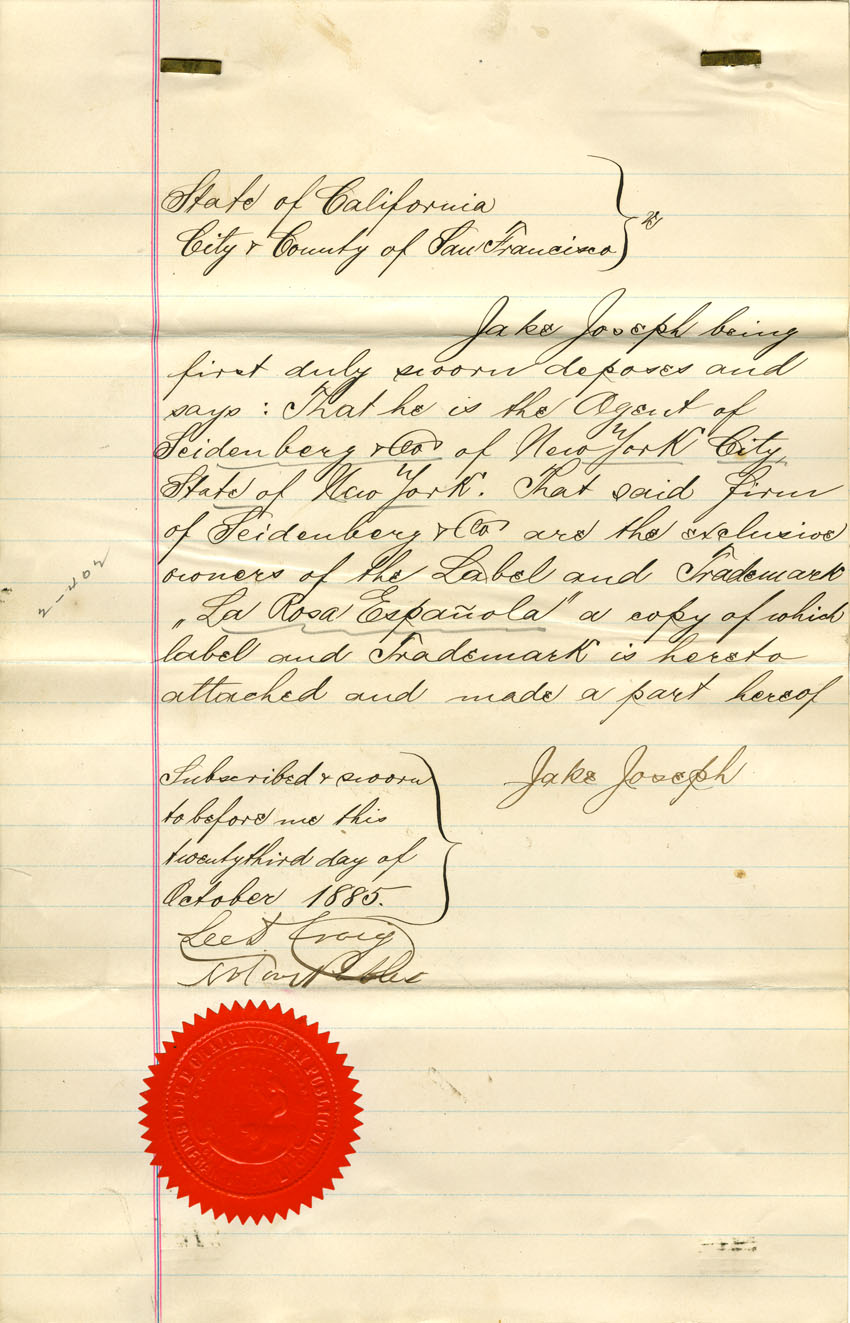 State of California
City & County of San Francisco } ss
Jake Joseph being
first duly sworn deposes and
says : That he is the Agent of
Seidenberg & Co of New York City,
State of New York. That said firm
of Seidenberg & Co are the exclusive
owners of the Label and Trademark
„La Rosa Española" a copy of which
label and Trademark is hereto
attached and made a part hereof
2-202
Jake Joseph
Subscribed & sworn
to before me this
twenty third day of
October 1885.
Lee D Craig
Notary Public
LEE D CRAIG NOTARY PUBLIC
SAN FRA